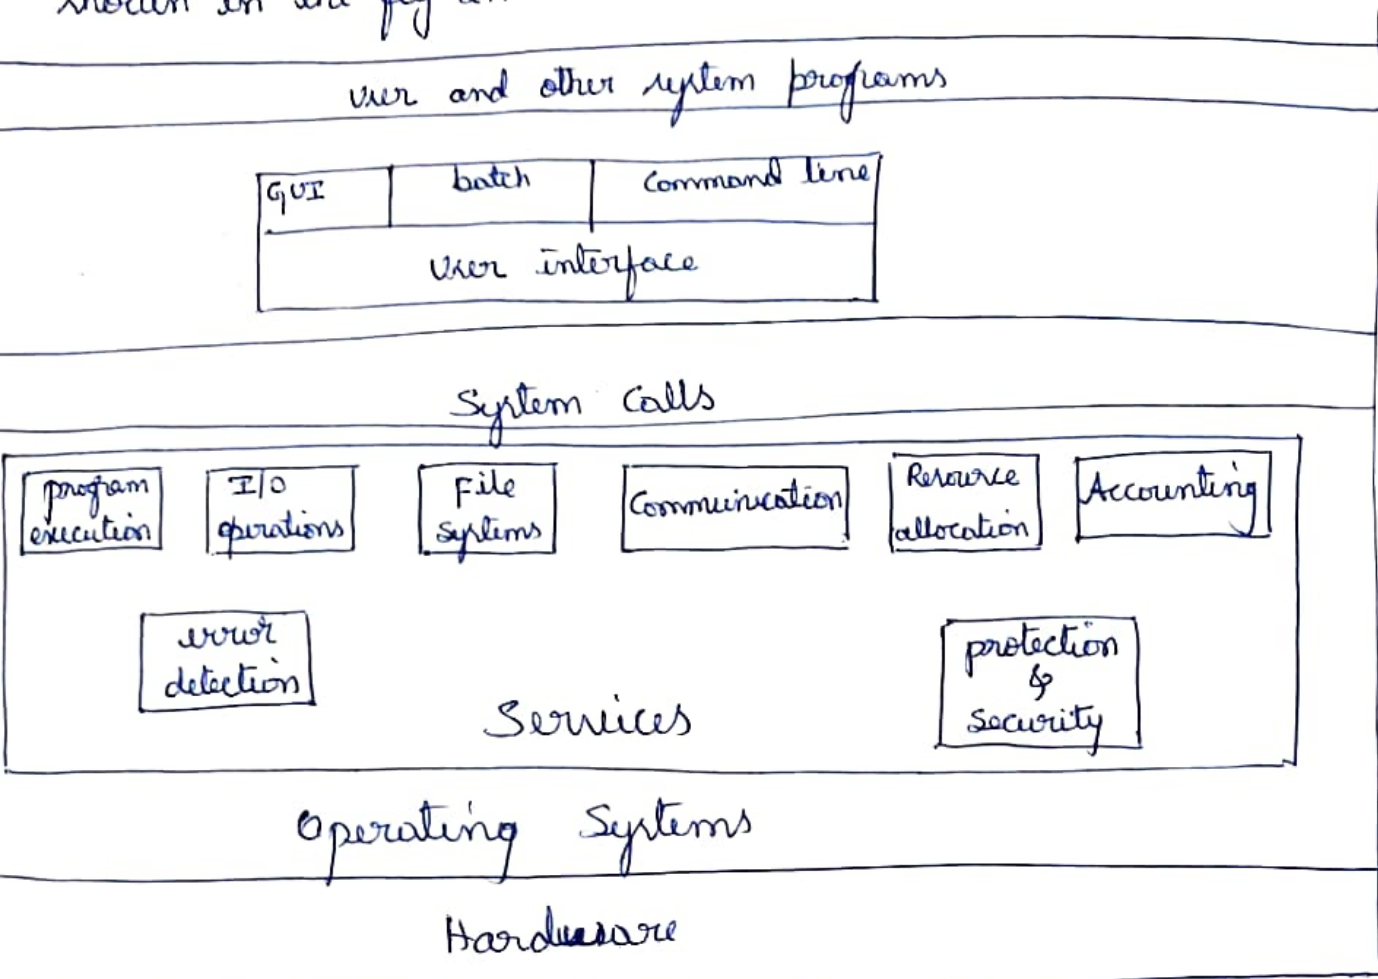 shown in the fig
user and other system programs
GUI batch command line
user interface
System Calls
program execution
I/O operations
File systems
Communication
Resource allocation
Accounting
error detection
protection & security
Services
Operating Systems
Hardware